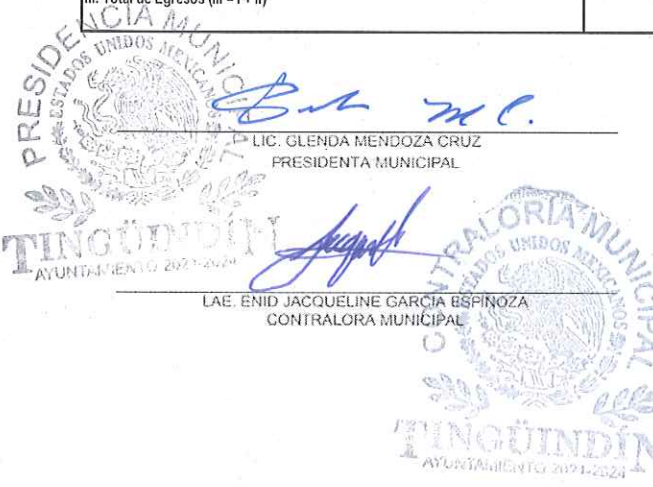 III. Total de Egresos (III = I + II)
PRESIDENCIA MUNICIPAL
ESTADOS UNIDOS MEXICANOS
TINGÜINDÍN
AYUNTAMIENTO 2021-2024
LIC. GLENDA MENDOZA CRUZ
PRESIDENTA MUNICIPAL
LAE. ENID JACQUELINE GARCIA ESPINOZA
CONTRALORA MUNICIPAL
CONTRALORIA MUNICIPAL
ESTADOS UNIDOS MEXICANOS
TINGÜINDÍN
AYUNTAMIENTO 2021-2024